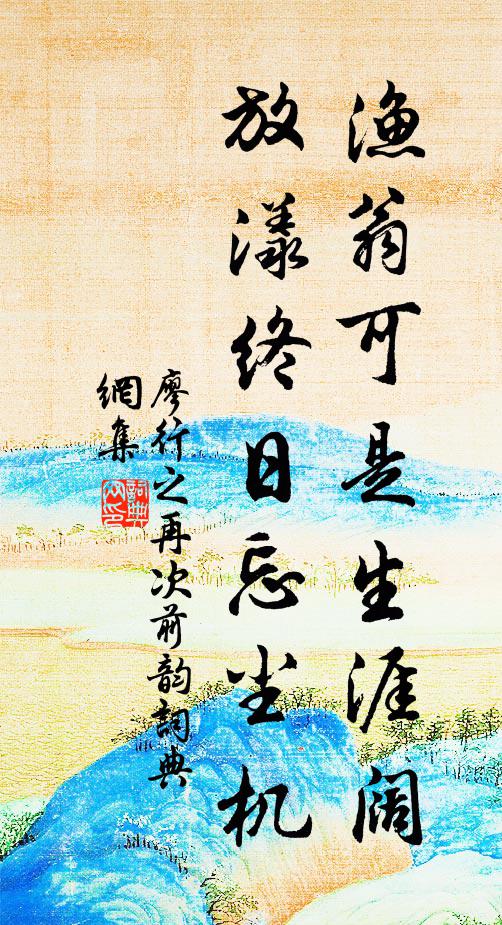 渔翁可是生涯阔
放漾终日忘尘机
廖行之再次前韵詞典
網集
詞典